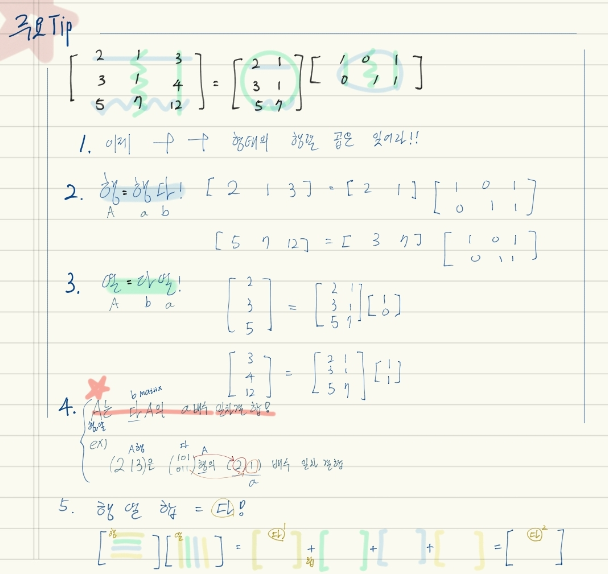 주요Tip
[2 1 3
3 1 4
5 7 12] = [2 1
3 1
5 7] [1 0 1
0 1 1]
1. 이제 형태의 행렬 곱은 잊어라!!
2. 행=행다! [2 1 3] = [2 1] [1 0 1
0 1 1]
A a b
[5 7 12] = [3 7] [1 0 1
0 1 1]
3. 열=다열! [2
3
5] = [2 1
3 1
5 7] [1
0]
A b a
[3
4
12] = [2 1
3 1
5 7] [1
1]
b matrix
4. A는 다A의 a배수 일차결합!
행열
ex) A행 다 A
(2 1 3)은 (1 0 1
0 1 1) 행의 (2)(1) 배수 일차결합
a
5. 행 열 합 = 다!
[행] [열] = [다¹] + [ ] + [ ] + [ ] = [다²]
행